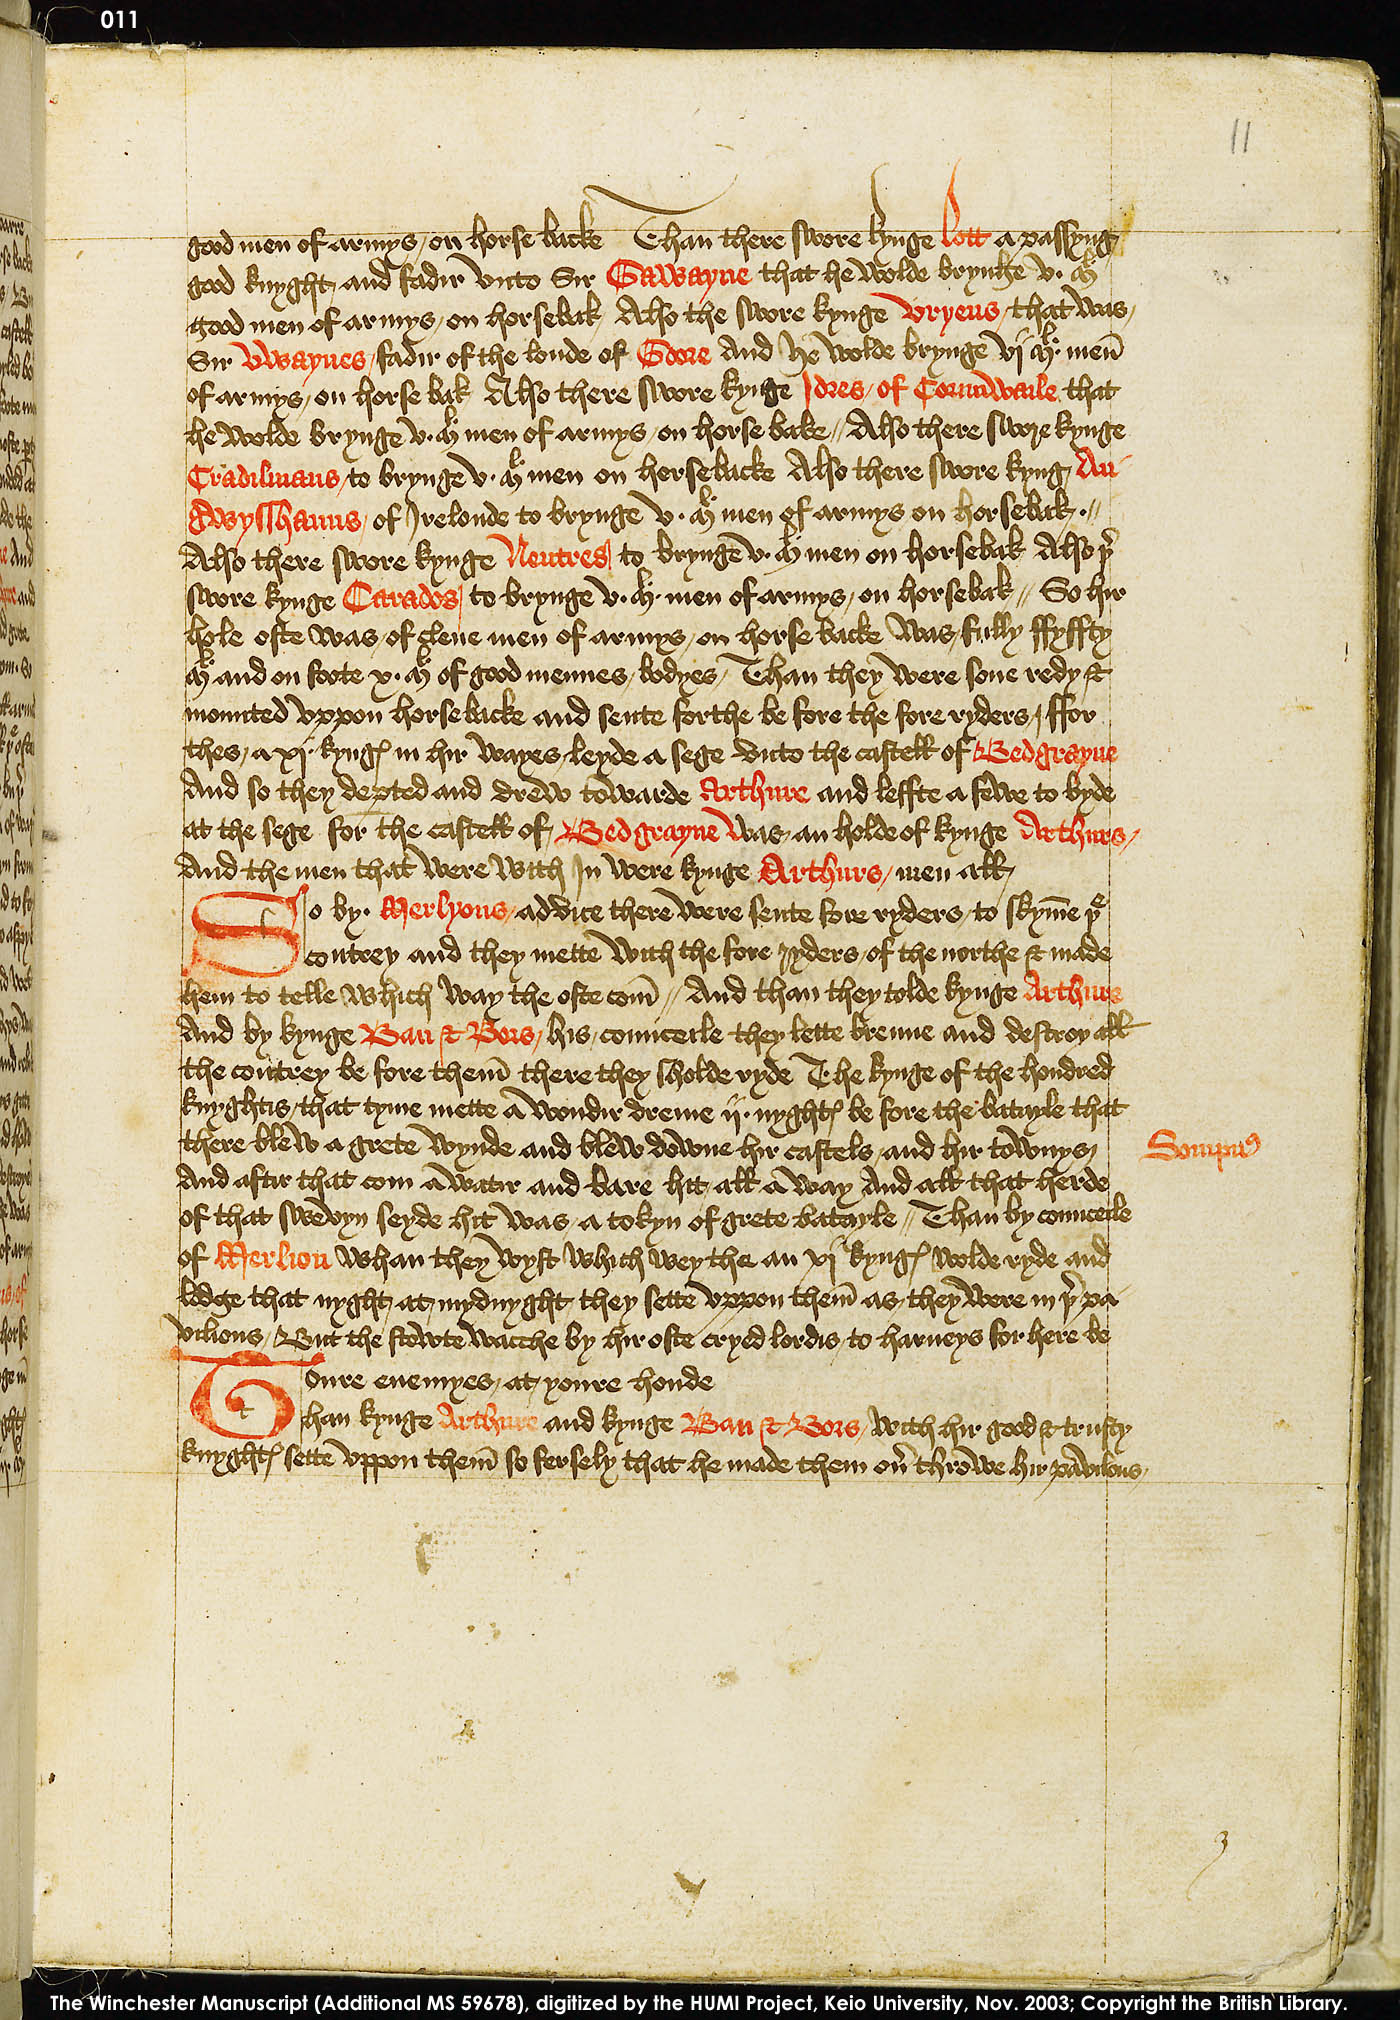 011
11
good men of armys on horse backe Than there swore kynge Lott a passyng
good knyght and fadir vnto Sir Gawayne that he wolde brynge v. Ml
good men of armys on horsebak Also the swore kynge Vryens that was
Sir Vwaynes fadir of the londe of Goore And he wolde brynge vj Ml. men̄
of armys on horse bak Also there swore kynge Idres of Cornuwaile that
he wolde brynge v. Ml men of armys on horse bake // Also there swore kynge
Cradilmans to brynge v. Ml men on horsebacke Also there swore kyng An
gwysshauns of Irelonde to brynge v. Ml men of armys on horsebak. //
Also there swore kynge Nentres to brynge v. Ml men on horsebak Also þr
swore kynge Carados to brynge v. Ml. men of armys on horsebak // So hir
hole oste was of clene men of armys on horse backe was fully ffyffty
Ml and on foote x. Ml of good mennes bodyes Than they were sone redy &
mounted vppon horsebacke and sente forthe be fore the fore ryders ffor
thes a xj. kyngꝭ in hir wayes leyde a sege vnto the castell of Bedgrayne
And so they depted and drew towarde Arthure and leffte a fewe to byde
at the sege for the castell of Bedgrayne was an holde of kynge Arthurs
And the men that were with In were kynge Arthurs men all
So by. Merlyons advice there were sente fore ryders to skym̄e þe
contrey and they mette with the fore ryders of the northe & made
hem to telle which way the oste com̄ // And than they tolde kynge Arthure
And by kynge Ban & Bors his counceile they lette brenne and destroy all
the contrey be fore them̄ there they sholde ryde The kynge of the hondred
knyghtis that tyme mette a wondir dreme ij. nyghtꝭ be fore the batayle that
there blew a grete wynde and blew downe hir castels and hir townys
And aftir that com a watir and bare hit all a way And all that herde
Sompnꝰ
of that swevyn seyde hit was a tokyn of grete batayle // Than by counceile
of Merlion whan they wyst which wey the an xj kyngꝭ wolde ryde and
lodge that nyght at mydnyght they sette vppon them̄ as they were in þr pa
vilions But the stowte wacche by hir oste cryed lordis to harneys for here be
oure enemyes at youre honde
Than kynge Arthure and kynge Ban & Bors with hir good & trusty
knyghtꝭ sette vppon them̄ so fersely that he made them ovr throwe hir pavilons
3
The Winchester Manuscript (Additional MS 59678), digitized by the HUMI Project, Keio University, Nov. 2003; Copyright the British Library.